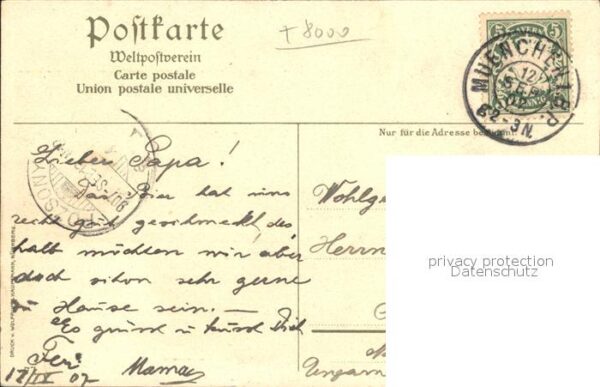 Postkarte
+8000
Weltpostverein
Carte postale
Union postale universelle
BAYERN
5 5
PFENNIG
MUENCHEN I B.P.
12
SEP
07
2-3N.
Nur für die Adresse bestimmt.
POZSONY
Lieber Papa!
Das Bier hat uns
recht gut geschmeckt des
halb möchten wir aber
doch schon sehr gerne
zu Hause sein. —
Es grüsst u küsst Dich
Feri
12/IX 07 Mama
Wohlge
Herrn
Ungarn
privacy protection
Datenschutz